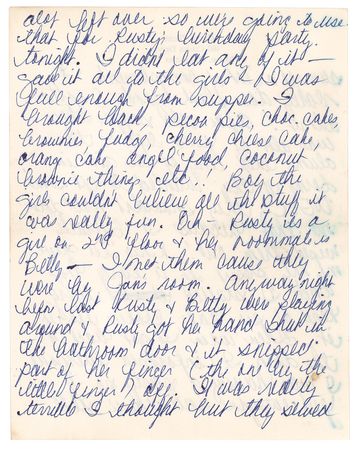 alot left over so were going to use
that for Rusty's birthday party
tonight. I didnt eat any of it -
gave it all to the girls & I was
full enough from supper. I
brought back, pecos pies, choc. cakes
brownies, fudg, cherry chees cake,
orang cake angel food, coconut
brownie things etc.! Boy the
girls couldnt believe all the stuff it
was really fun. Oh - Rusty is a
girl on 2nd floor & her roommate is
Betty - I met them caus they
were by Jans room. Anyway night
before last Rusty & Betty were playing
around & Rusty got her hand shut in
the bathroom door & it snipped
part of her finger (the one by the
little finger) off. It was really
terrible I thought but they sewed